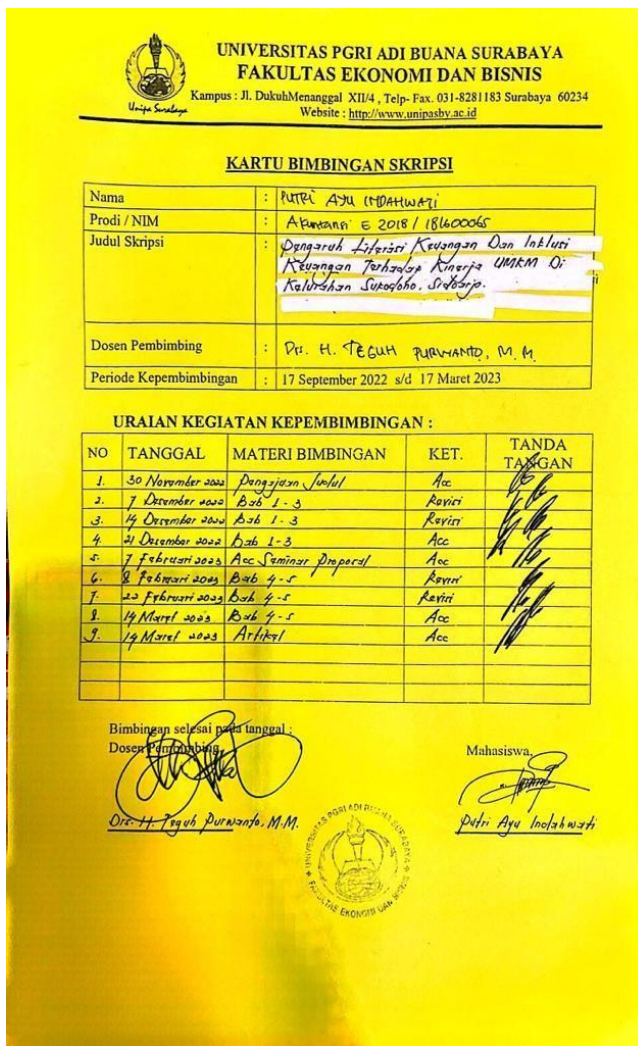 UNIVERSITAS PGRI ADI BUANA SURABAYA
FAKULTAS EKONOMI DAN BISNIS
Kampus : Jl. DukuhMenanggal XII/4 , Telp- Fax. 031-8281183 Surabaya 60234
Website : http://www.unipasby.ac.id
Unipa Surabaya
KARTU BIMBINGAN SKRIPSI
Nama : PUTRI AYU INDAHWATI
Prodi / NIM : Akuntansi E 2018 / 181600065
Judul Skripsi : Pengaruh Literasi Keuangan Dan Inklusi
Keuangan Terhadap Kinerja UMKM Di
Kelurahan Sukodono, Sidoarjo.
Dosen Pembimbing : Drs. H. TEGUH PURWANTO, M.M.
Periode Kepembimbingan : 17 September 2022 s/d 17 Maret 2023
URAIAN KEGIATAN KEPEMBIMBINGAN :
NO TANGGAL MATERI BIMBINGAN KET. TANDA TANGAN
1. 30 November 2022 Pengajuan Judul Acc
2. 7 Desember 2022 Bab 1-3 Revisi
3. 14 Desember 2022 Bab 1-3 Revisi
4. 21 Desember 2022 Bab 1-3 Acc
5. 7 Februari 2023 Acc Seminar Proposal Acc
6. 8 Februari 2023 Bab 4-5 Revisi
7. 22 Februari 2023 Bab 4-5 Revisi
8. 14 Maret 2023 Bab 4-5 Acc
9. 14 Maret 2023 Artikel Acc
Bimbingan selesai pada tanggal :
Dosen Pembimbing, Mahasiswa,
Drs. H. Teguh Purwanto, M.M. Putri Ayu Indahwati
UNIVERSITAS PGRI ADI BUANA SURABAYA
FAKULTAS EKONOMI DAN BISNIS